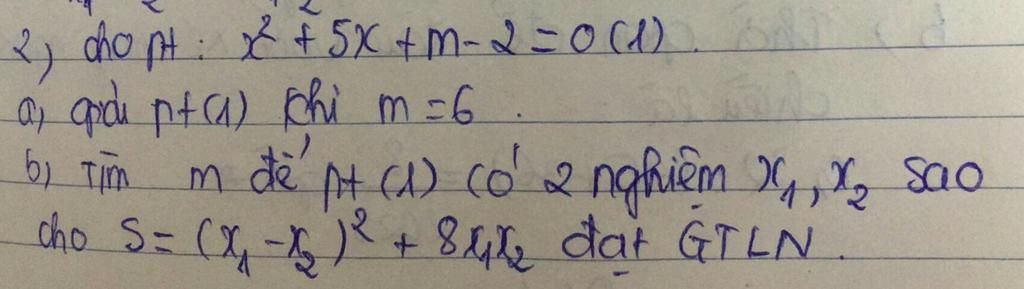 2, cho pt : x² + 5x + m - 2 = 0 (1).
a, giải pt (1) khi m = 6 .
b, Tìm m để pt (1) có 2 nghiệm x₁, x₂ sao
cho S = (x₁ - x₂)² + 8x₁x₂ đạt GTLN.